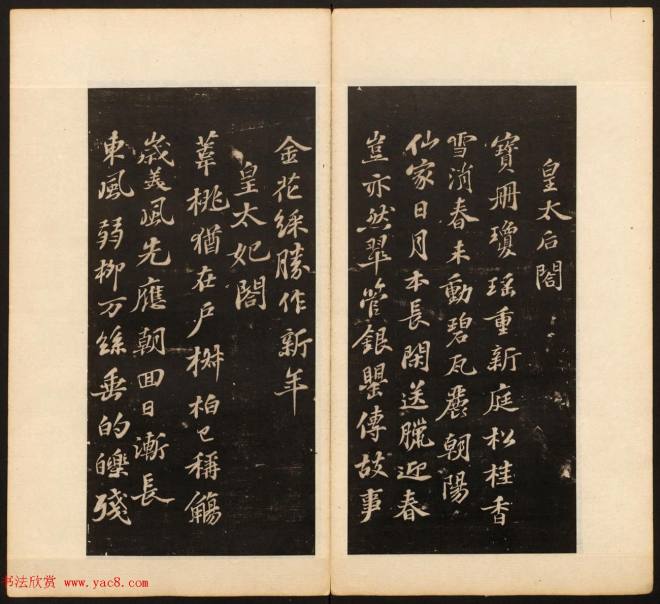 皇太后閤
寶册瓊瑶重新庭松桂香
雪消春未動碧瓦麗朝陽
仙家日月本長閑送臘迎春
豈亦然翠管銀罌傳故事
金花綵勝作新年
皇太妃閤
葦桃猶在戶椒柏已稱觴
歲美風先應朝回日漸長
東風弱柳万絲垂的皪殘
书法欣赏 www.yac8.com